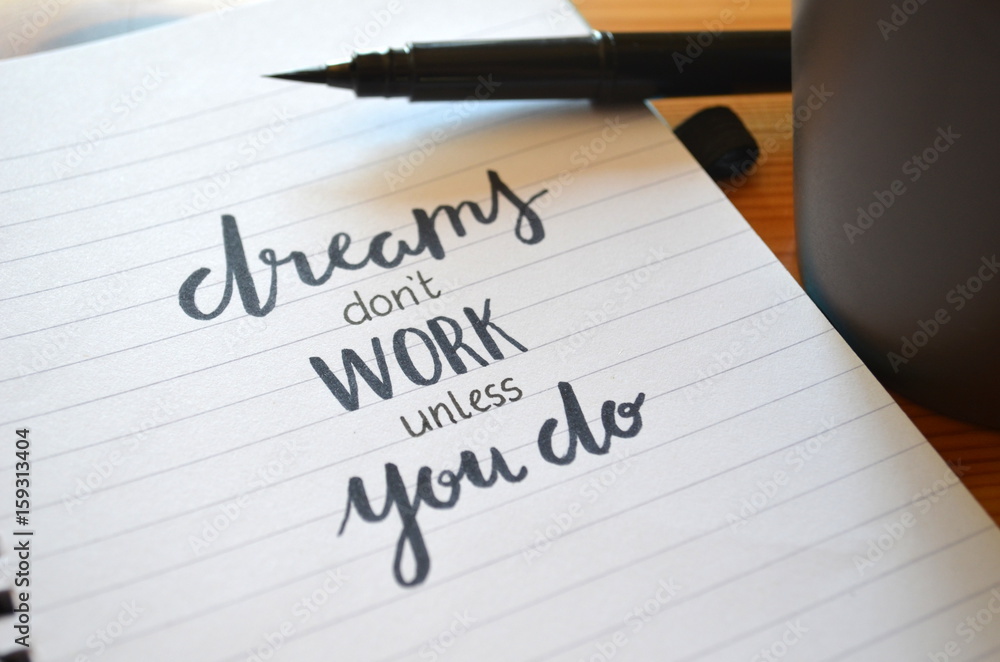 dreams
don't
WORK
unless
you do
Adobe Stock | #159313404